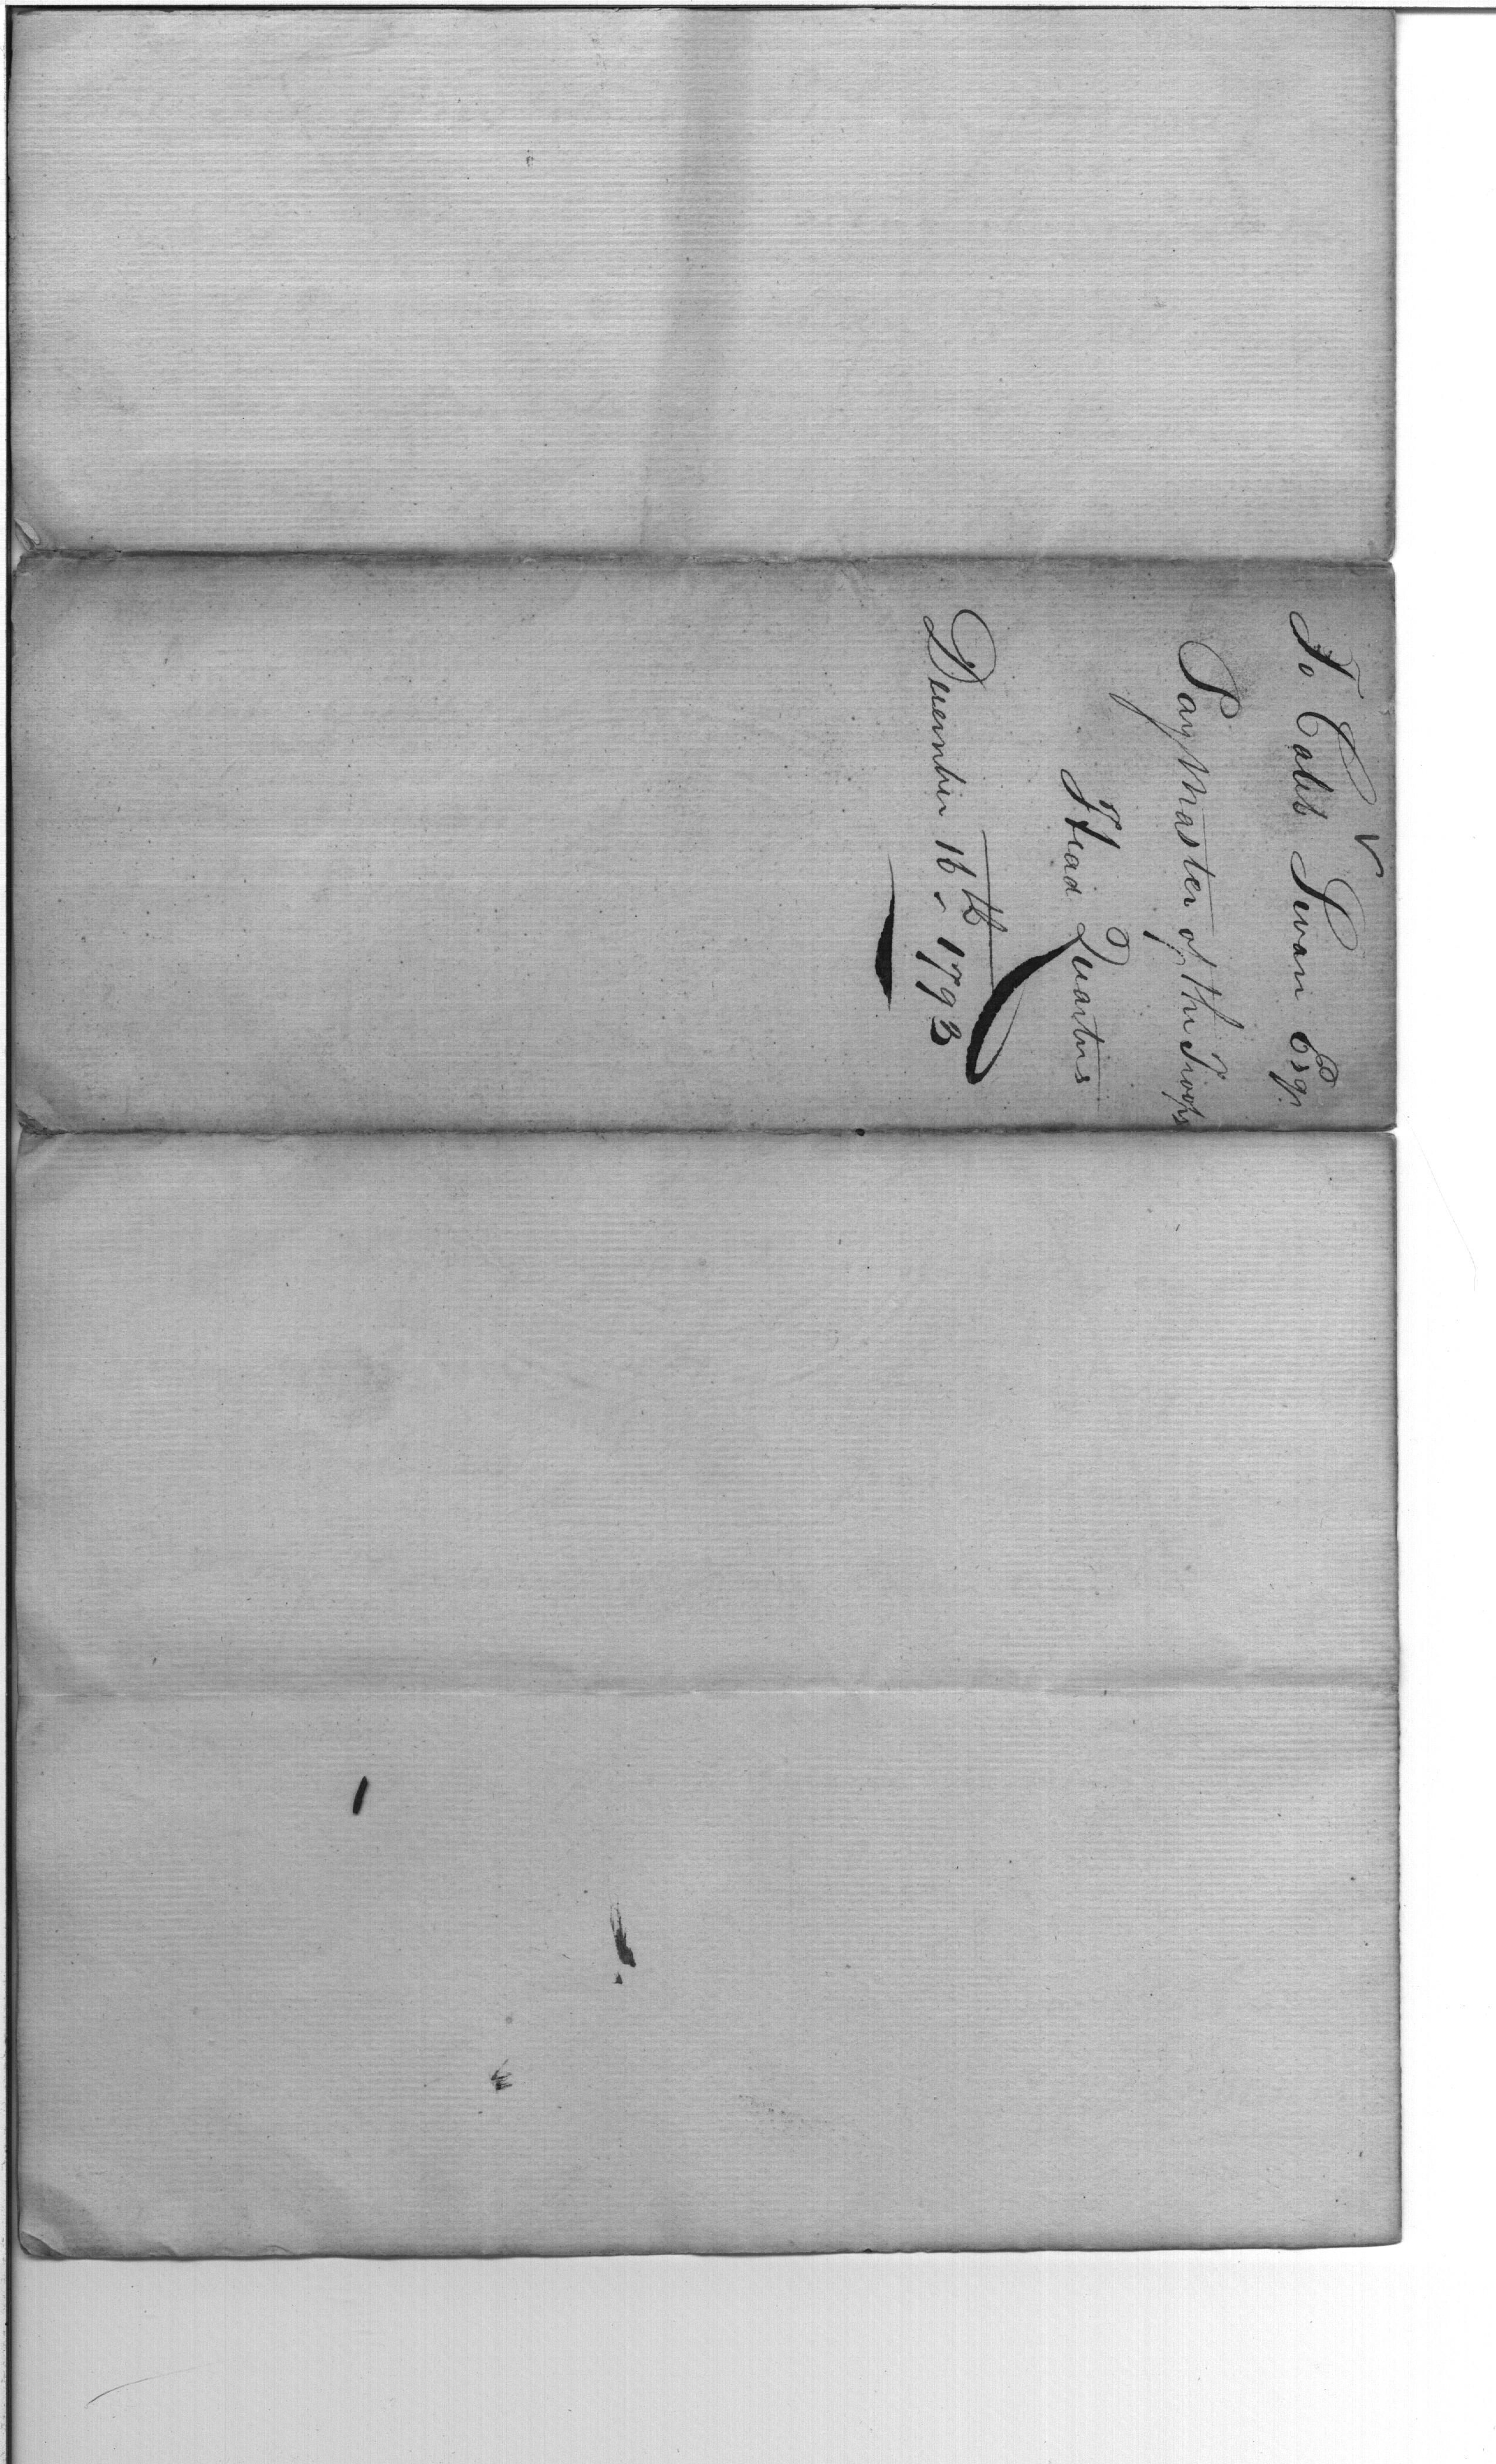 To Caleb Swan Esqr.
PayMaster of the Troops
Head Quarters
December 16th. 1793